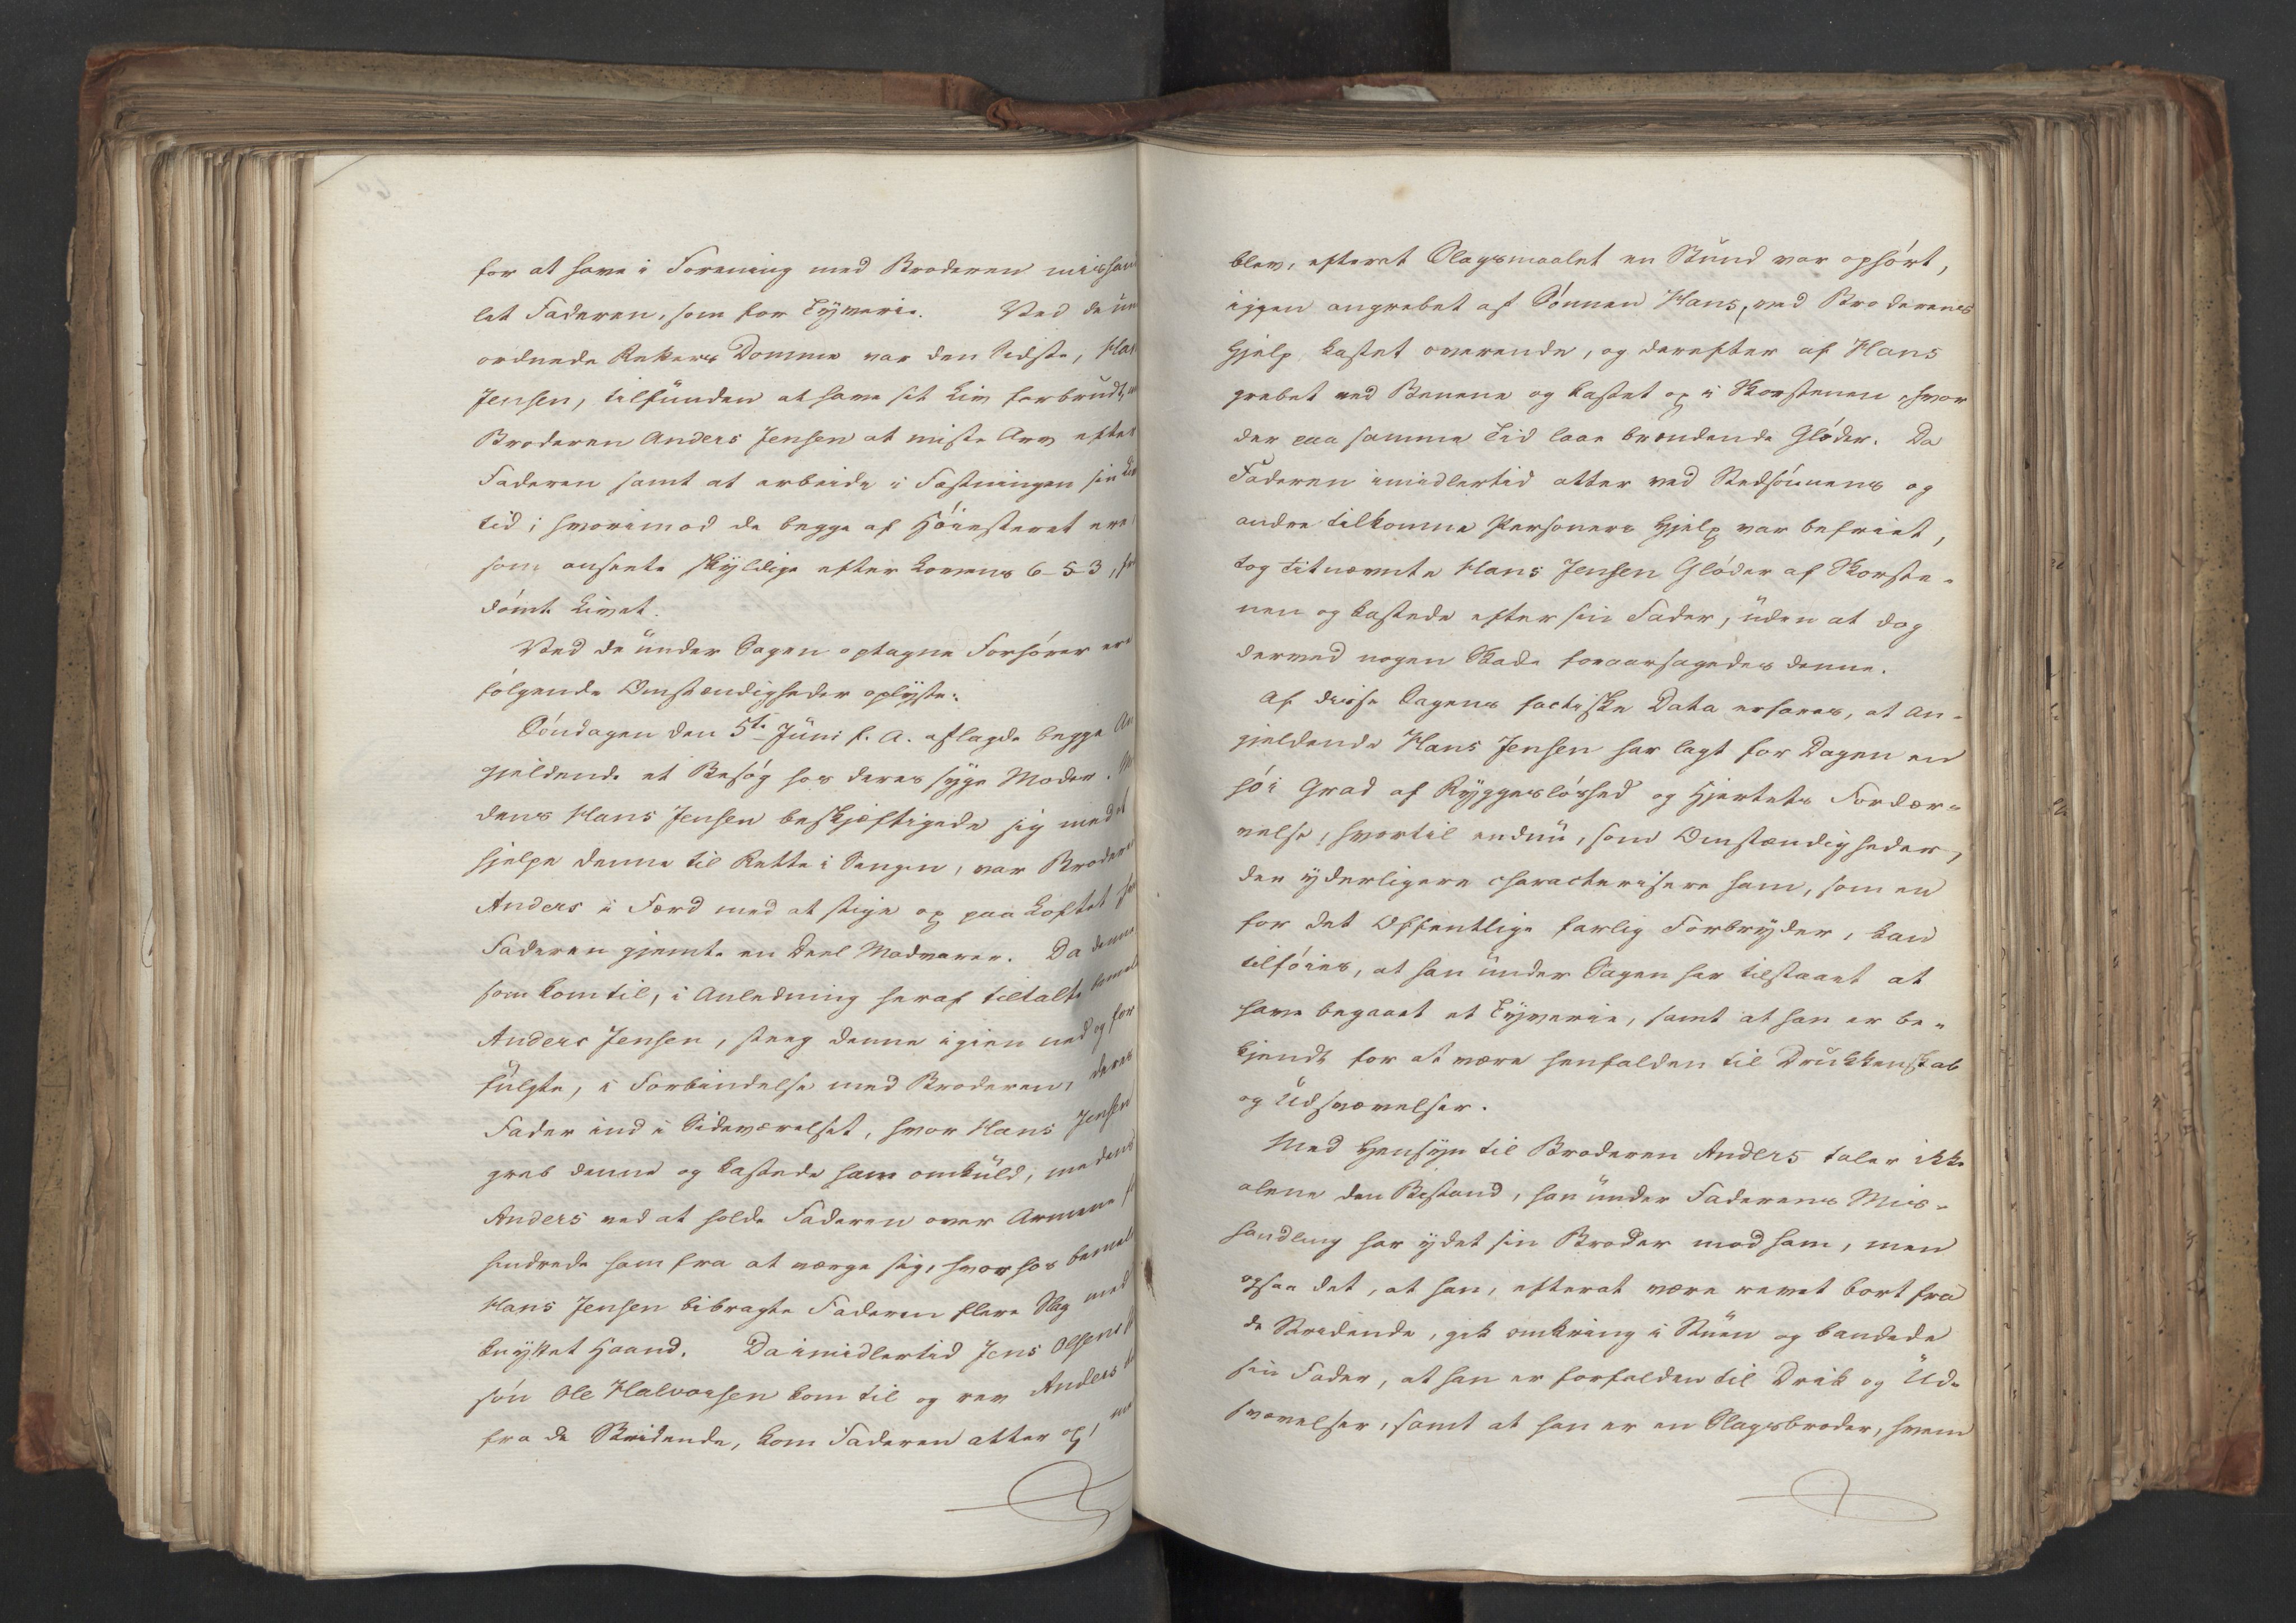 for at have i Forening med Broderen mishan
let Faderen, som for Tyverie. Ved de un
ordnede Retters Domme var den Sidste, Han
Jensen, tilfunden at have sit Liv forbrudt,
Broderen Anders Jensen at miste Arv efter
Faderen samt at arbeide i Fæstningen sin Liv
tid; hvorimod de begge af Høiesteret ere
som ansete skyldige efter Lovens 6-5-3, fra
dømt Livet.
Ved de under Sagen optagne Forhører ere
følgende Omstændigheder oplyste:
Søndagen den 5te Juni f. A. aflagde begge An
gjeldende et Besøg hos deres syge Moder. Me
dens Hans Jensen beskjæftigede sig med at
hjelpe denne til Rette i Sengen, var Broderen
Anders i Færd med at stige op paa Loftet hvor
Faderen gjemte en Deel Madvarer. Da denne
som kom til, i Anledning heraf tiltalte bemeldte
Anders Jensen, steeg denne igien ned og for
fulgte, i Forbindelse med Broderen, deres
Fader ind i Sideværelset, hvor Hans Jensen
greb denne og kastede ham omkuld, medens
Anders ved at holde Faderen over Armene
hindrede ham fra at værge sig, hvorhos bemeld
Hans Jensen bibragte Faderen flere Slag med
knyttet Haand. Da imidlertid Jens Olsens
søn Ole Halvorsen kom til og rev Anders
fra de Stridende, kom Faderen atter op, men
blev, efterat Slagsmaalet en Stund var ophørt,
igjen angrebet af Sønnen Hans, ved Broderens
Hjelp kastet overende, og derefter af Hans
grebet ved Benene og kastet op i Skorstenen, hvor
der paa samme Tid laae brændende Gløder. Da
Faderen imidlertid atter ved Stedsønnens og
andre tilkomne Personers Hjelp var befriet,
tog titnævnte Hans Jensen Gløder af Skorste-
nen og kastede efter sin Fader, uden at dog
derved nogen Skade foraarsagedes denne.
Af disse Sagens factiske Data erfares, at An-
gjeldende Hans Jensen har lagt for Dagen en
høi Grad af Ryggesløshed og Hjertets Fordær-
velse, hvortil endnu, som Omstændigheder,
der yderligere characterisere ham, som en
for det Offentlige farlig Forbryder, kan
tilføies, at han under Sagen har tilstaaet at
have begaaet et Tyverie, samt at han er be-
kjendt for at være henfalden til Drukkenskab
og Udsvævelser.
Med Hensyn til Broderen Anders taler ikke
alene den Bistand, han under Faderens Mis-
handling har ydet sin Broder mod ham, men
ogsaa det, at han, efterat være revet bort fra
de Stridende, gik omkring i Stuen og bandede
sin Fader, at han er forfalden til Drik og Ud-
svævelser, samt at han er en Slagsbroder, hvem